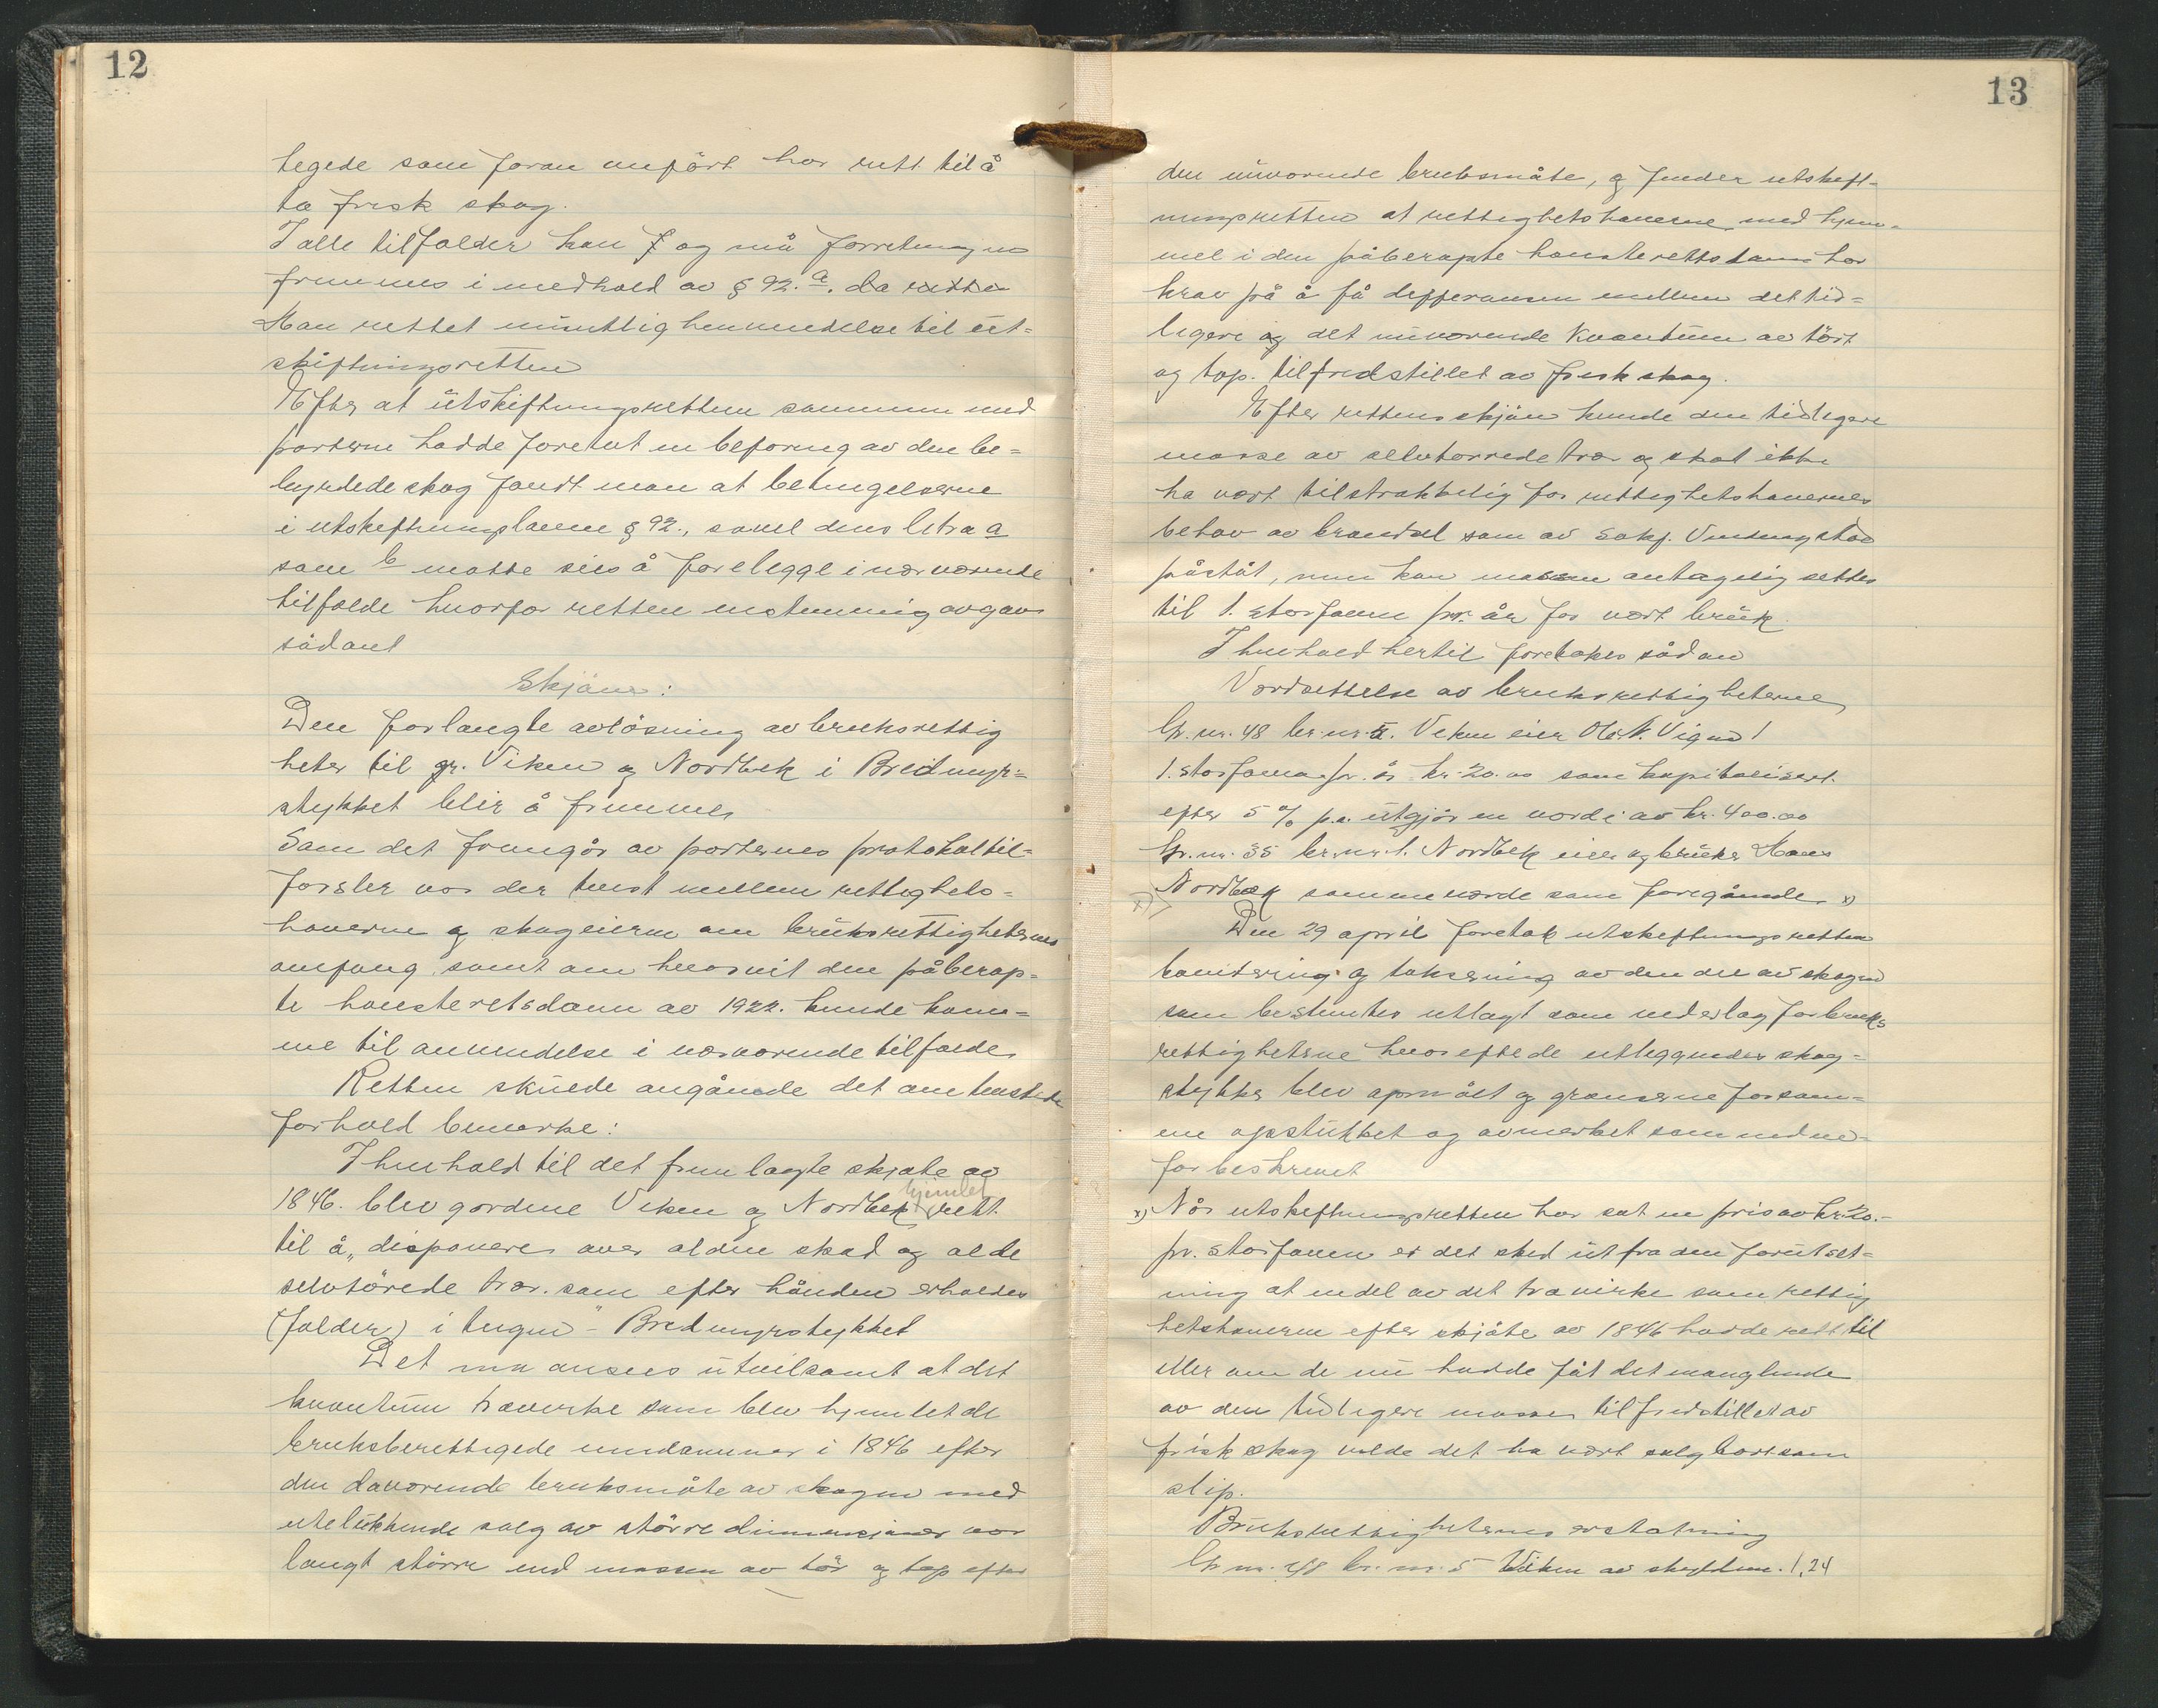 12
tegede som foran anført har rett til å
ta frisk skog.
I alle tilfælder kan og må forretningen
fremmes i medhold av § 92. a. da retten
Man rettet mundtlig henvendelse til ut-
skiftningsretten
Efter at utskiftningsretten sammen med
parterne hadde foretat en befaring av den be-
byrdede skog fandt man at betingelserne
i utskiftningslovens § 92., såvel dens litra a
som b måtte sies å forelegge i nærværende
tilfælde hvorfor retten enstemmig avgav
sådant
Skjønn:
Den forlangte avløsning av bruksrettig
heter til gr. Viken og Nordbek i Breidmyr-
stykket blir å fremme,
Som det fremgår av parternes protokoltil-
førsler var der tvist mellem rettighets-
haverne og skogeierne om bruksrettigheternes
omfang samt om hvorvit den påberop-
te høiesteretsdom av 1922. kunde kom-
me til anvendelse i nærværende tilfælde,
Retten skulde angående det omtvistede
forhold bemerke:
I henhold til det fremlagte skjøte av
1846. blev gårdene Viken og Nordbek hjemlet rett
til å „disponere over al den skad og al de
selvtørrede trær. som efter hånden erholdes
(falder) i lengen" - Breidmyrstykket
Det må ansees utvilsomt at det
kvantum trævirke som blev hjemlet de
bruksberettigede eiendommer i 1846 efter
den daværende bruksmåte av skogen med
utelukkende salg av større dimensjoner var
langt større end massen av tør og top efter
13
den nuværende bruksmåte, og finder utskift-
ningsretten at rettighetshaverne med hjem-
mel i den påberopte høiesterettsdom har
krav på å få differansen mellem det tid-
ligere og det nuværende kvantum av tørt
og top. tilfredstillet av frisk skog.
Efter rettens skjøn kunde den tidligere
masse av selvtørrede trær og skat ikke
ha vært tilstrækkelig for rettighetshavernes
behov av brændsel som av Sakf.
påståt, men kan massen antagelig settes
til 1. storfavn pr. år for vært bruk.
I henhold hertil foretokes sådan
Værdsettelse av bruksrettigheterne,
Gr. nr. 48 br. nr. 5. Viken eier Ole N. Vigen!
1. storfavn pr. år kr. 20.00 som kapitalisert
efter 5 % p.a. utgjør en værdi av kr. 400.00
Gr. nr. 55 br. nr. 1. Nordbek eier og bruker Hans
x) Nordbek samme værde som foregående. x)
Den 29 april foretok utskiftningsretten
bonitering og taksering av den del av skogen
som bestemtes utlagt som vederlag for bruks
rettigheterne hvorefter de utleggendes skog-
stykke blev opmålt og grænserne for sam-
me opstukket og avmerket som neden-
for beskrevet
x) Når utskiftningsretten har sat en pris av kr. 20.-
pr. storfavn er det sked ut fra den forutset-
ning at endel av det trævirke som rettig
hetshaverne efter skjøte av 1846 hadde rett til
eller om de nu hadde fåt det manglende
av den tidligere masse tilfredstillet av
frisk skog vilde det ha vært salgbart som
slip.
Bruksrettigheternes erstatning
Gr. nr. 48 br. nr. 5 Viken av skyldm. 1,24